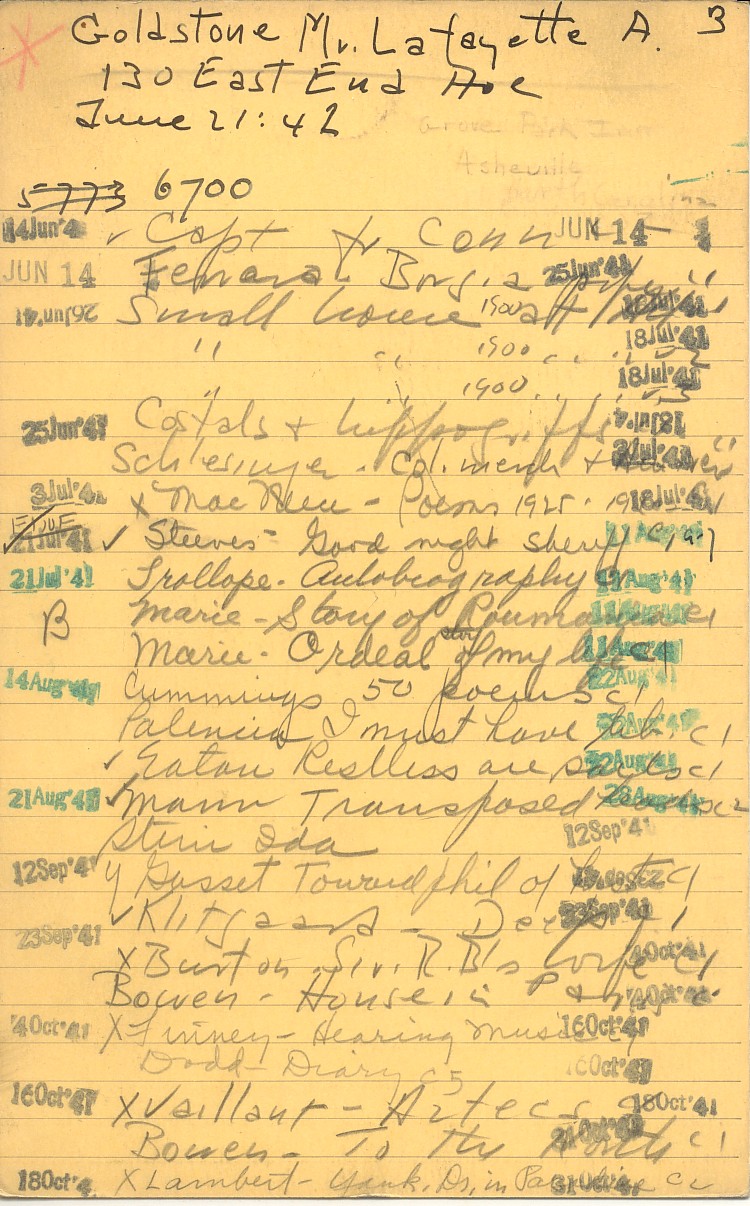 Goldstone Mr. Lafayette A. 3
130 East End Ave
June 21:42
Grove Park Inn
Asheville
North Carolina
5773 6700
14Jun'4 ✓ Capt fr Conn JUN 14
JUN 14 Ferrara. Borgia 25Jun'41
26Jun'41 Small house 1900 att
" " 1900 " " 18Jul'41
" " 1900 " 3 18Jul'41
25Jun'41 Costals & hippogriffs 18Jul'4
Schlesinger. Col. merch & 2Jul'41
3Jul'41 X Mac Niece - Poems 1925. 19 18Jul'41
21Jul'41 ✓ Steeves - Good night sheriff c1 11Aug
21Jul'41 Trollope - Autobiography Aug'41
B Marie - Story of Roumania c1
Marie - Ordeal story of my life c1 11Aug'41
14Aug'41 Cummings 50 poems c1 22Aug'41
Palencia I must have lib. c1
✓ Eaton Restless are sails c1 22Aug'41
21Aug'41 ✓ Mann Transposed heads c2 28Aug'41
Stein Ida 12Sep'41
12Sep'41 Gasset Toward phil of hist c1
23Sep'41 ✓ Klitgaard - 23Sep'41 1
X Burton, Sir. R. B's wife c1 4Oct'41
Bowen - House in P
4Oct'41 X Finney - Hearing music 16Oct'41
Dodd - Diary c5 16Oct'41
16Oct'41 X Vaillant - Aztecs 18Oct'41
Bowen - To the North c1
18Oct'4 X Lambert - Yank. Drs. in Paradise c2 31Oct'41